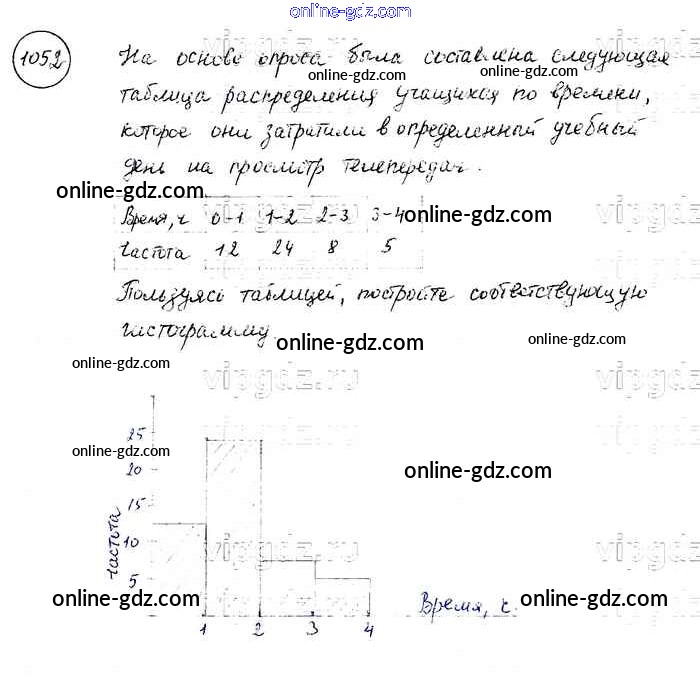 online-gdz.com
online-gdz.com
1052
На основе опроса была составлена следующая
vipgdz.ru
online-gdz.com
online-gdz.com
таблица распределения учащихся по времени,
которое они затратили в определенный учебный
online-gdz.com
день на просмотр телепередач.
online-gdz.com
vipgdz.ru
Время, ч 0-1 1-2 2-3 3-4
online-gdz.com
Частота 12 24 8 5
Пользуясь таблицей, постройте соответствующую
гистограмму.
online-gdz.com
online-gdz.com
online-gdz.com
vipgdz.ru
25
online-gdz.com
20
online-gdz.com
15
частота
10
5
online-gdz.com
Время, ч.
online-gdz.com
1 2 3 4